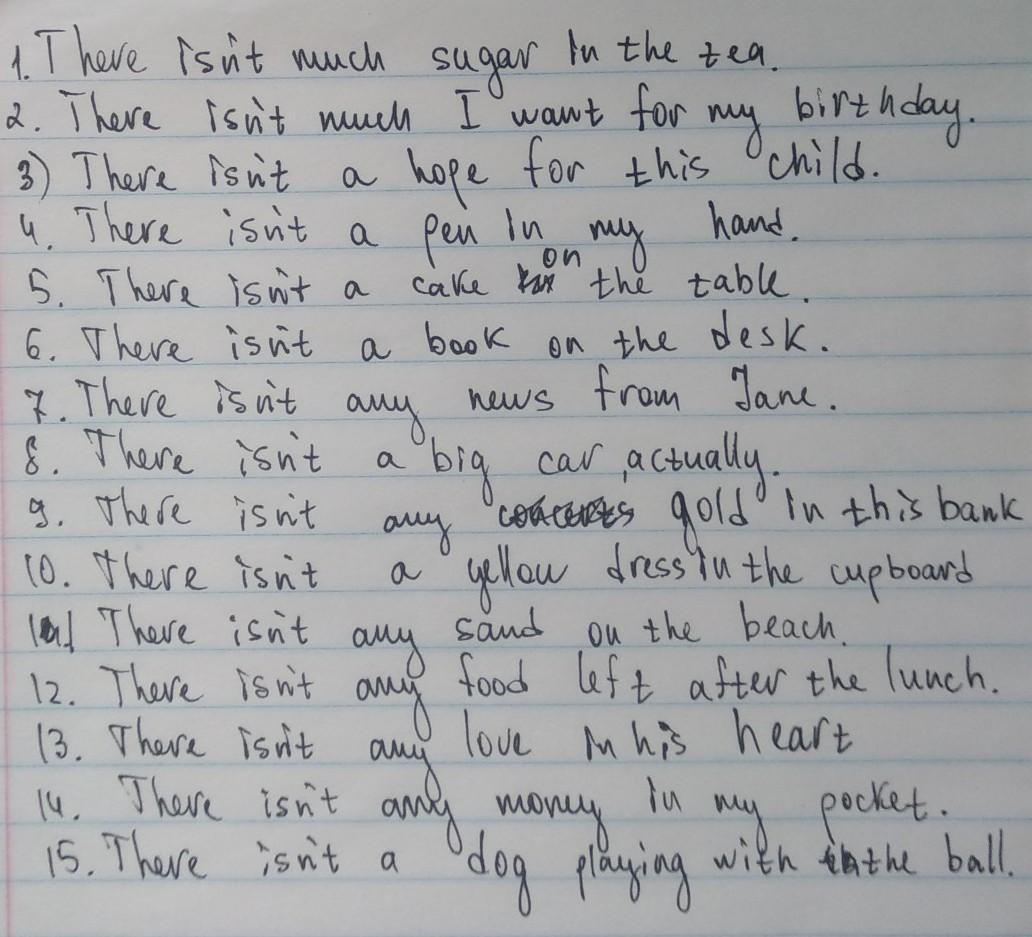 1. There isn't much sugar in the tea.
2. There isn't much I want for my birthday.
3) There isn't a hope for this child.
4. There isn't a pen in my hand.
5. There isn't a cake on the table.
6. There isn't a book on the desk.
7. There isn't any news from Jane.
8. There isn't a big car, actually.
9. There isn't any gold in this bank
10. There isn't a yellow dress in the cupboard
11. There isn't any sand on the beach.
12. There isn't any food left after the lunch.
13. There isn't any love in his heart
14. There isn't any money in my pocket.
15. There isn't a dog playing with the ball.